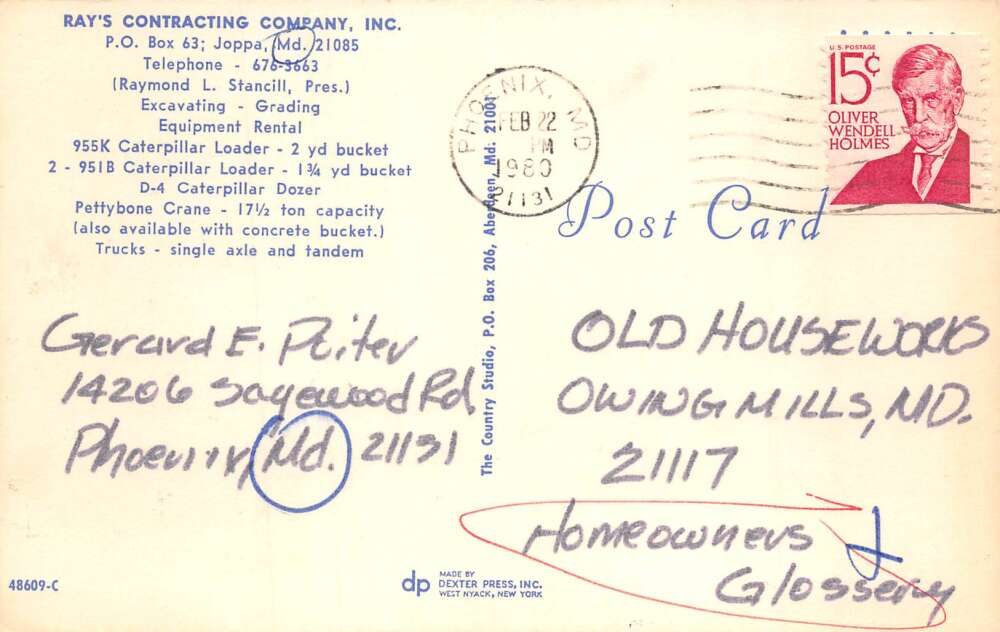 RAY'S CONTRACTING COMPANY, INC.
P.O. Box 63; Joppa, Md. 21085
Telephone - 676-3663
(Raymond L. Stancill, Pres.)
Excavating - Grading
Equipment Rental
955K Caterpillar Loader - 2 yd bucket
2 - 951B Caterpillar Loader - 1¾ yd bucket
D-4 Caterpillar Dozer
Pettybone Crane - 17½ ton capacity
(also available with concrete bucket.)
Trucks - single axle and tandem
Gerard E. Poiter
14206 Sagewood Rd.
Phoenix, Md. 21131
48609-C
The Country Studio, P.O. Box 206, Aberdeen, Md. 21001
dp
MADE BY
DEXTER PRESS, INC.
WEST NYACK, NEW YORK
PHOENIX, MD
FEB 22
PM
1980
21131
U.S. POSTAGE
15¢
OLIVER
WENDELL
HOLMES
Post Card
OLD HOUSEWORKS
OWING MILLS, MD.
21117
Homeowners
Glossery